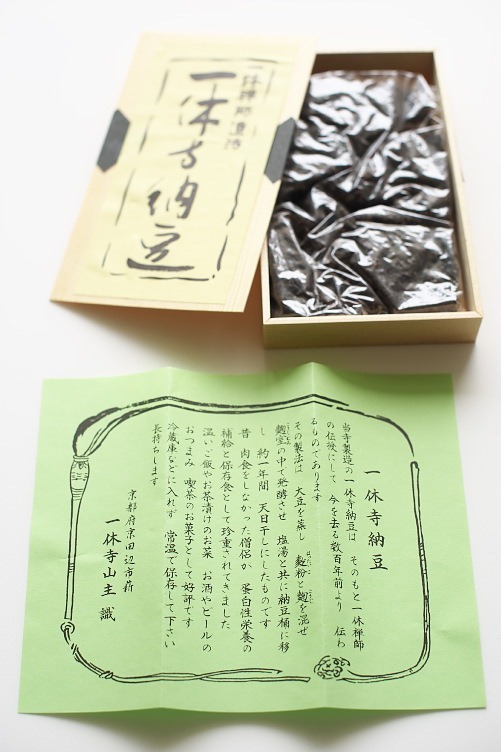 一休禅師遺法
一休寺納豆
一休寺納豆
当寺製造の一休寺納豆は　そのもと一休禅師
の伝授にして　今を去る数百年前より　伝わ
るものであります
その製法は　大豆を蒸し　麹粉と麹を混ぜ
麹室の中で発酵させ　塩湯と共に納豆桶に移
し　約一年間　天日干しにしたものです
昔　肉食をしなかった僧侶が　蛋白性栄養の
補給と保存食として珍重されてきました
温いご飯やお茶漬けのお菜　お酒やビールの
おつまみ　喫茶のお菓子として好評です
冷蔵庫などに入れず　常温で保存して下さい
長持ちします
京都府京田辺市薪
一休寺山主　識